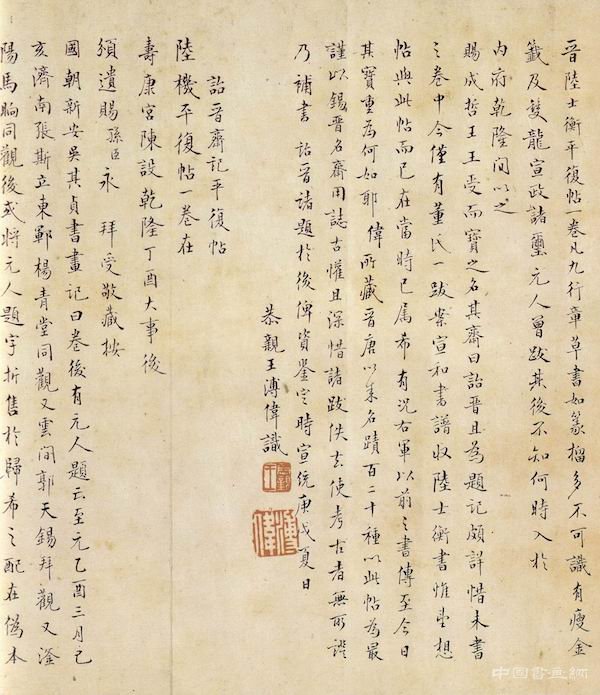 晉陸士衡平復帖一卷凡九行章草書如篆籀多不可識有瘦金
籤及雙龍宣政諸璽元人曾跋其後不知何時入於
內府乾隆間以之
賜成哲王王受而寶之名其齋曰詒晉且為題記頗詳惜未書
之卷中今僅有董氏一跋案宣和書譜收陸士衡書惟
帖與此帖而已在當時已屬希有況右軍以前之書傳至今日
其寶重為何如耶偉所藏晉唐以來名蹟百二十種以此帖為最
謹以錫晉名齋用誌古懽且深惜諸跋佚去使考古者無所證
乃補書詒晉諸題於後俾資鑒定時宣統庚戌夏日
恭親王溥偉識
詒晉齋記平復帖
陸機平復帖一卷在
壽康宮陳設乾隆丁酉大事後
頒遺賜孫臣永 拜受敬藏按
國朝新安吳其貞書畫記曰卷後有元人題云至元乙酉三月己
亥濟南張斯立東鄆楊青堂同觀又雲間郭天錫拜觀又滏
陽馬昫同觀後或將元人題字折售於歸希之配在偽本
溥偉
中國書畫網